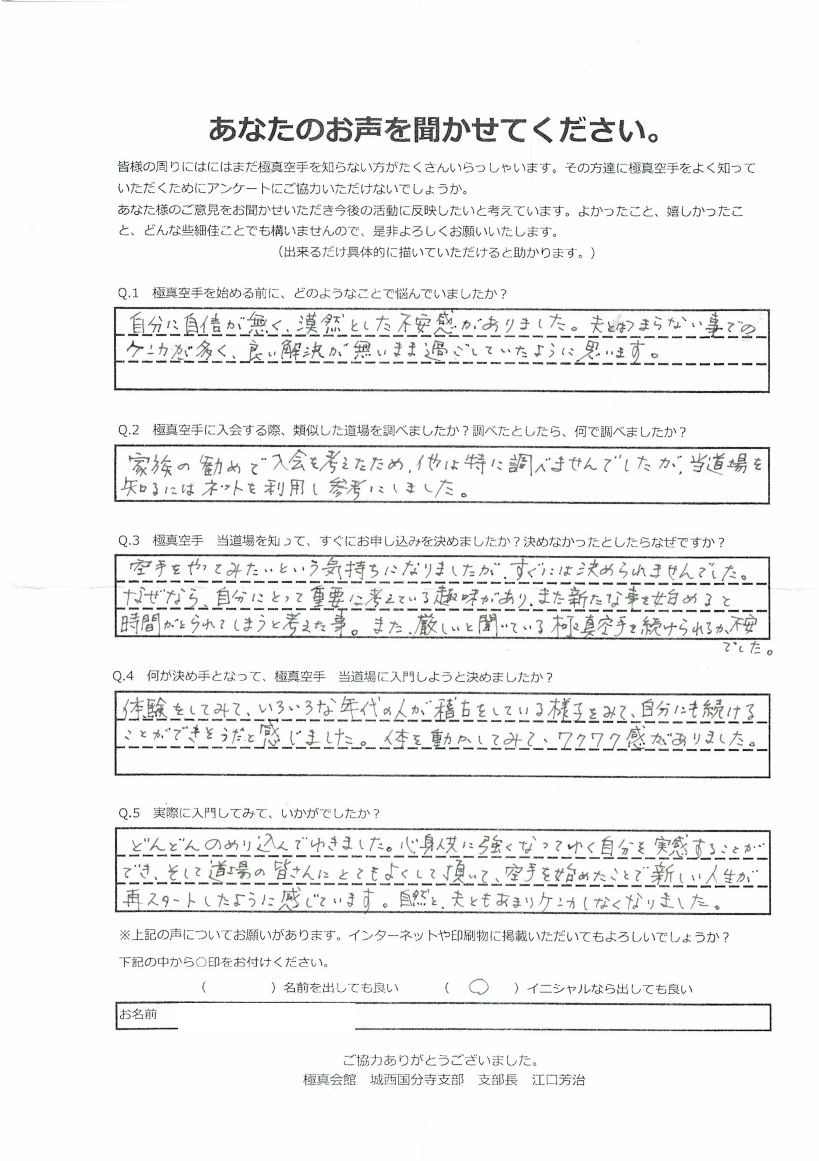 あなたのお声を聞かせてください。
皆様の周りにはにはまだ極真空手を知らない方がたくさんいらっしゃいます。その方達に極真空手をよく知って
いただくためにアンケートにご協力いただけないでしょうか。
あなた様のご意見をお聞かせいただき今後の活動に反映したいと考えています。よかったこと、嬉しかったこ
と、どんな些細佳ことでも構いませんので、是非よろしくお願いいたします。
（出来るだけ具体的に描いていただけると助かります。）
Q.1 極真空手を始める前に、どのようなことで悩んでいましたか？
自分に自信が無く、漠然とした不安感がありました。夫とはつまらない事での
ケンカが多く、良い解決が無いまま過ごしていたように思います。
Q.2 極真空手に入会する際、類似した道場を調べましたか？調べたとしたら、何で調べましたか？
家族の勧めで入会を考えたため、他は特に調べませんでしたが、当道場を
知るにはネットを利用し参考にしました。
Q.3 極真空手 当道場を知って、すぐにお申し込みを決めましたか？決めなかったとしたらなぜですか？
空手をやってみたいという気持ちになりましたが、すぐには決められませんでした。
なぜなら、自分にとって重要に考えている趣味があり、また新たな事を始めると
時間がとられてしまうと考えた事。また、厳しいと聞いている極真空手を続けられるか、不安
でした。
Q.4 何が決め手となって、極真空手 当道場に入門しようと決めましたか？
体験をしてみて、いろいろな年代の人が稽古をしている様子をみて、自分にも続ける
ことができそうだと感じました。体を動かしてみて、ワクワク感がありました。
Q.5 実際に入門してみて、いかがでしたか？
どんどんのめり込んでゆきました。心身共に強くなってゆく自分を実感することが
でき、そして道場の皆さんにとてもよくして頂いて、空手を始めたことで新しい人生が
再スタートしたように感じています。自然と、夫ともあまりケンカしなくなりました。
※上記の声についてお願いがあります。インターネットや印刷物に掲載いただいてもよろしいでしょうか？
下記の中から○印をお付けください。
（ ）名前を出しても良い （ ○ ）イニシャルなら出しても良い
お名前
ご協力ありがとうございました。
極真会館 城西国分寺支部 支部長 江口芳治